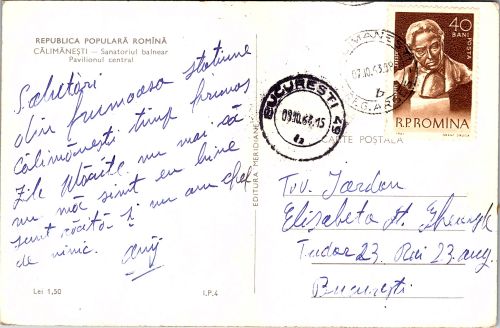 REPUBLICA POPULARĂ ROMÎNĂ
CĂLIMĂNEȘTI — Sanatoriul balnear
Pavilionul central
Salutări
din frumoasa stațiune
Călimănești timp frumos
zile plăcute nu mai să
nu mă simt eu bine
sunt răcită și nu am chef
de nimic.
Lei 1,50
I.P. 4
EDITURA MERIDIANE
CARTE POSTALA
BUCUREȘTI
09.10.64.15
40
BANI
POSTA
R.P.ROMINA
Tov. Iordan
Elisabeta
Tudor 23. Rai 23 aug.
București